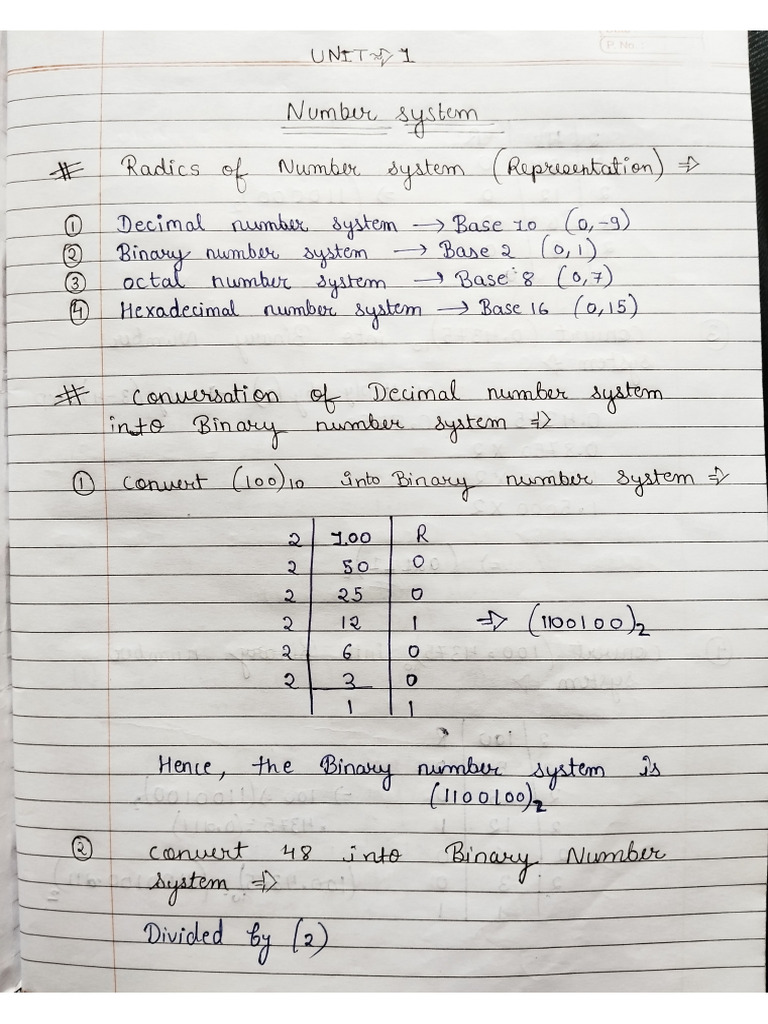 P. No.
UNIT ⇒ 1
Number system
# Radics of Number system (Representation) ⇒
① Decimal number system → Base 10 (0,-9)
② Binary number system → Base 2 (0,1)
③ octal number system → Base 8 (0,7)
④ Hexadecimal number system → Base 16 (0,15)
# Conversation of Decimal number system
into Binary number system ⇒
① Convert (100)10 into Binary number system ⇒
2 | 100 | R
2 | 50 | 0
2 | 25 | 0
2 | 12 | 1 ⇒ (1100100)2
2 | 6 | 0
2 | 3 | 0
| 1 | 1
Hence, the Binary number system is
(1100100)2
② Convert 48 into Binary Number
system ⇒
Divided by (2)